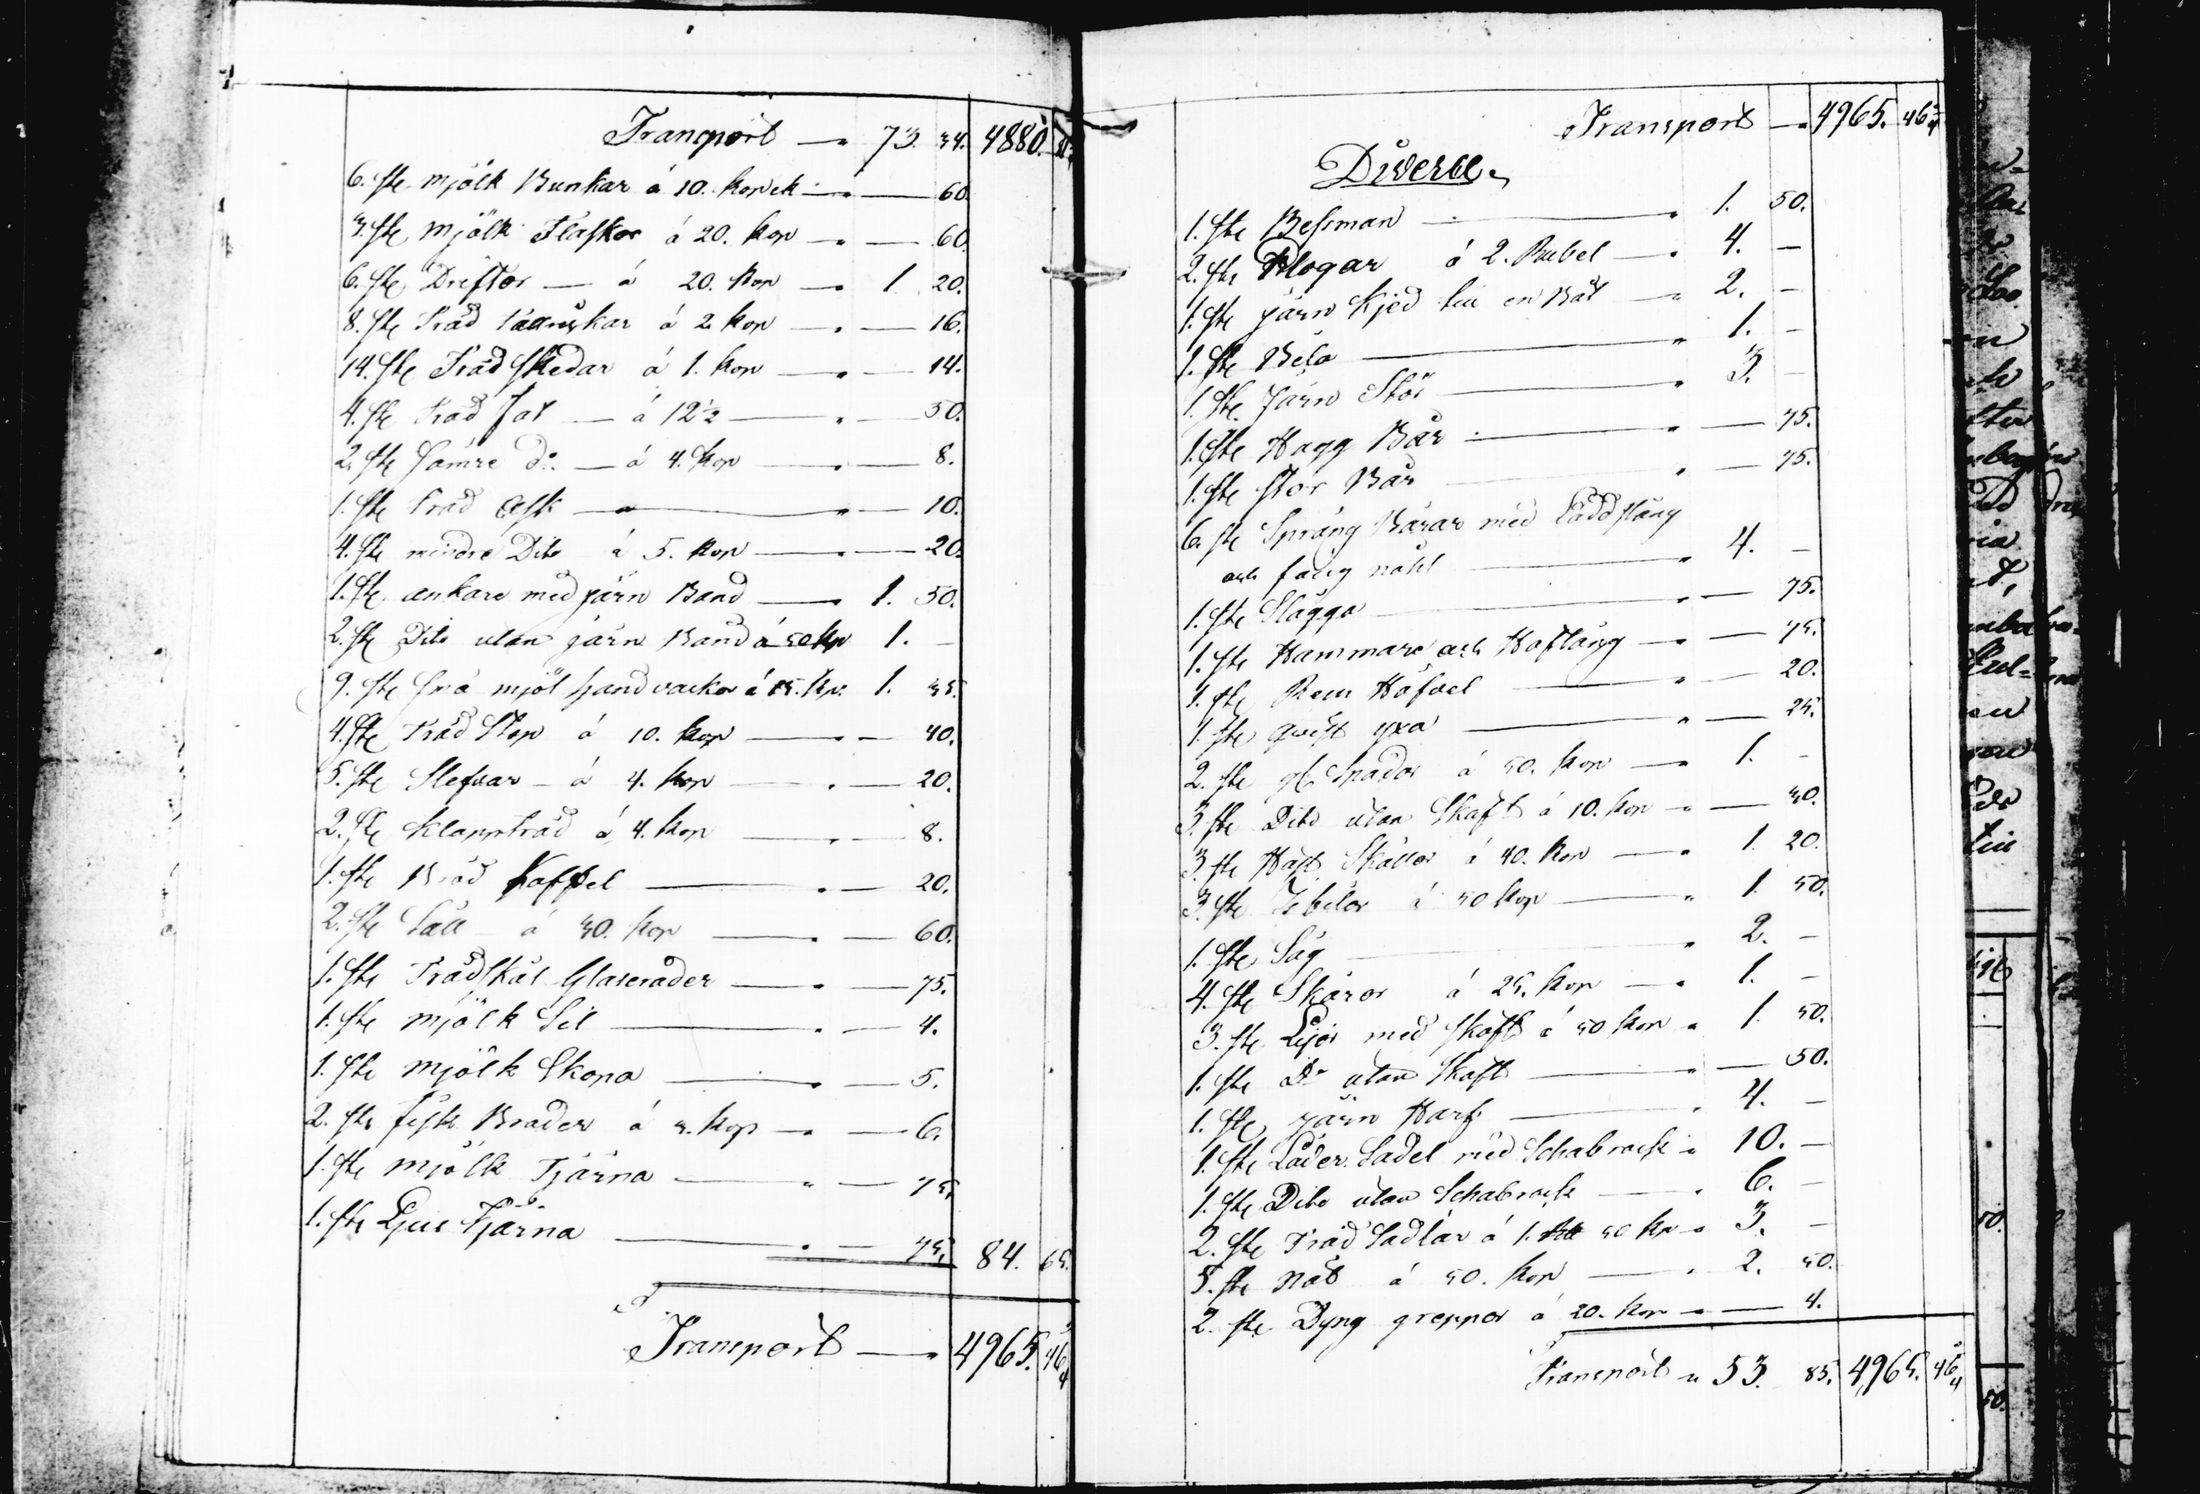 Transport — 73. 34. 4880.
6. st. mjölk Bunkar á 10. kopek — 60.
3. st. mjölk Flaskor á 20. kop — 60.
6. st. Drifter — á 20. kop — 1. 20.
8. st. Träd á 2. kop — 16.
14. st. Träd Skedar á 1. kop — 14.
4. st. Träd fat — á 12½ — 50.
2. st. Sämre do. — á 4. kop — 8.
1. st. Träd Ask — 10.
4. st. mindre Dito á 5. kop — 20.
1. st. ankare med järn Band — 1. 50.
2. st. Dito utan järn Band á 50 kop 1. —
9. st. små mjöl á 15. kop. 1. 35.
4. st. Träd Stop á 10. kop — 40.
5. st. Slefvar — á 4. kop — 20.
2. st. Klappträd á 4. kop — 8.
1. st. Bröd — 20.
2. st. Såll — á 30. kop — 60.
1. st. Trädskål Glaserader — 75.
1. st. mjölk Sil — 4.
1. st. mjölk Skopa — 5.
2. st. fisk Bräder á 3. kop — 6.
1. st. mjölk Tjärna — 75.
1. st. Ljus Tjärna — 75. 84. 65.
Transport — 4965. 46 3/4
Transport — 4965. 46 3/4
Diverse.
1. st. Besman — 1. 50.
2. st. Plogar á 2. Rubel — 4. —
1. st. järn Kjed till en Båt — 2. —
1. st. Bila — 1. —
1. st. Järn Stör — 3. —
1. st. Hugg Bår — 75.
1. st. stor Bår — 75.
6. st. Spräng Bårar med Laddstång
och fäng nåhl — 4. —
1. st. Slägga — 75.
1. st. Hammare och Hoftång — 75.
1. st. Höfvel — 20.
1. st. qvist yxa — 25.
2. st. Spador á 50. kop — 1. —
3. st. Dito utan Skaft á 10. kop — 30.
3. st. Häst Skållor á 40. kop — 1. 20.
3. st. Isbilor á 50 kop — 1. 50.
1. st. Såg — 2. —
4. st. Skäror á 25. kop — 1. —
3. st. Lijor med skaft á 50 kop — 1. 50.
1. st. Do utan Skaft — 50.
1. st. järn Harf — 4. —
1. st. Läder Sadel med Schabrack — 10. —
1. st. Dito utan Schabrack — 6. —
2. st. Träd Sadlar á 1. 50 kop — 3. —
5. st. Nät á 50. kop — 2. 50.
2. st. Dyng greppor á 20. kop — 4.
Transport — 53. 85. 4965. 46 3/4